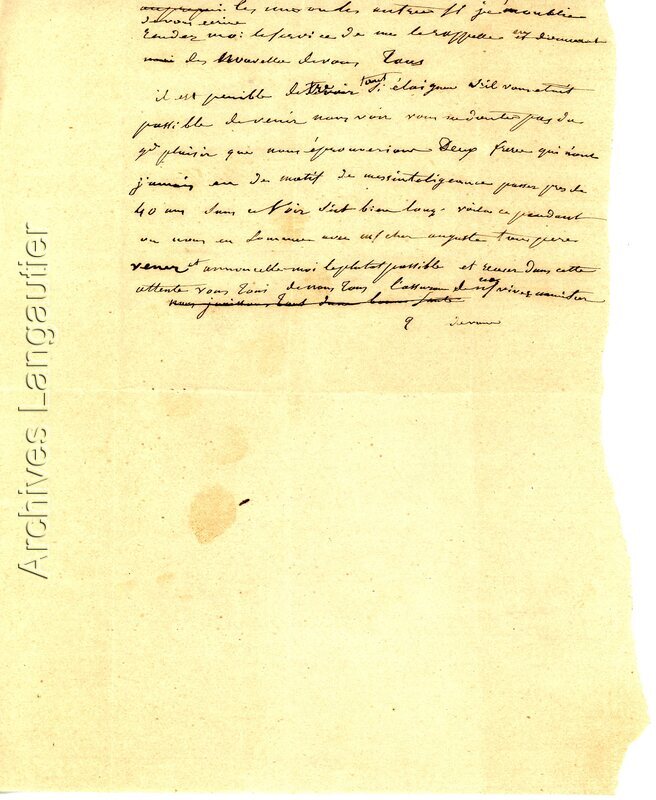 les uns ou les autres si j'émoublie
de vous écrire
rendez moi le service de me le rappeller en me donnant
des Nouvelle de vous Tous
il est penible detre tant si éloigné s'il vous etait
possible de venir nous voir vous ne doutez pas du
gd plaisir que nous éprouverions Deux frere qui n'ont
jamais eu de motif de messinteligeance passer pres de
40 ans sans ce Voir s'est bien long - voila ce pendant
ou nous en sommes avec mon cher auguste ton pere
venez et annoncelle-moi le plutot possible et recever dans cette
attente vous Tous de nous Tous l'assurance de nos vive amitier
nous jouissons tout d'une bonne santé
9
Archives Langautier